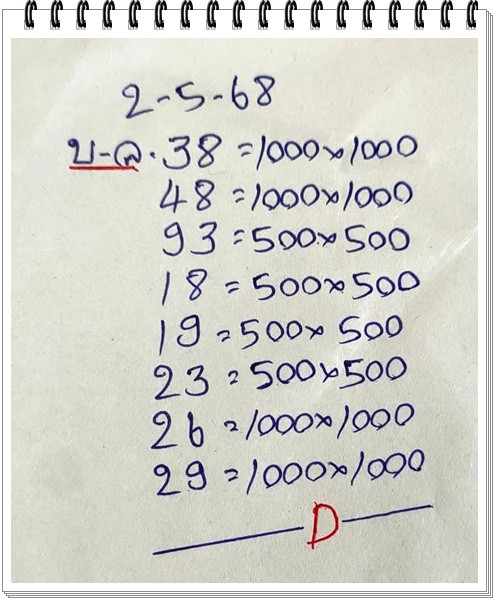 2-5-68
บ-ล. 38 = 1000x1000
48 = 1000x1000
93 = 500x500
18 = 500x500
19 = 500x500
23 = 500x500
26 = 1000x1000
29 = 1000x1000
D